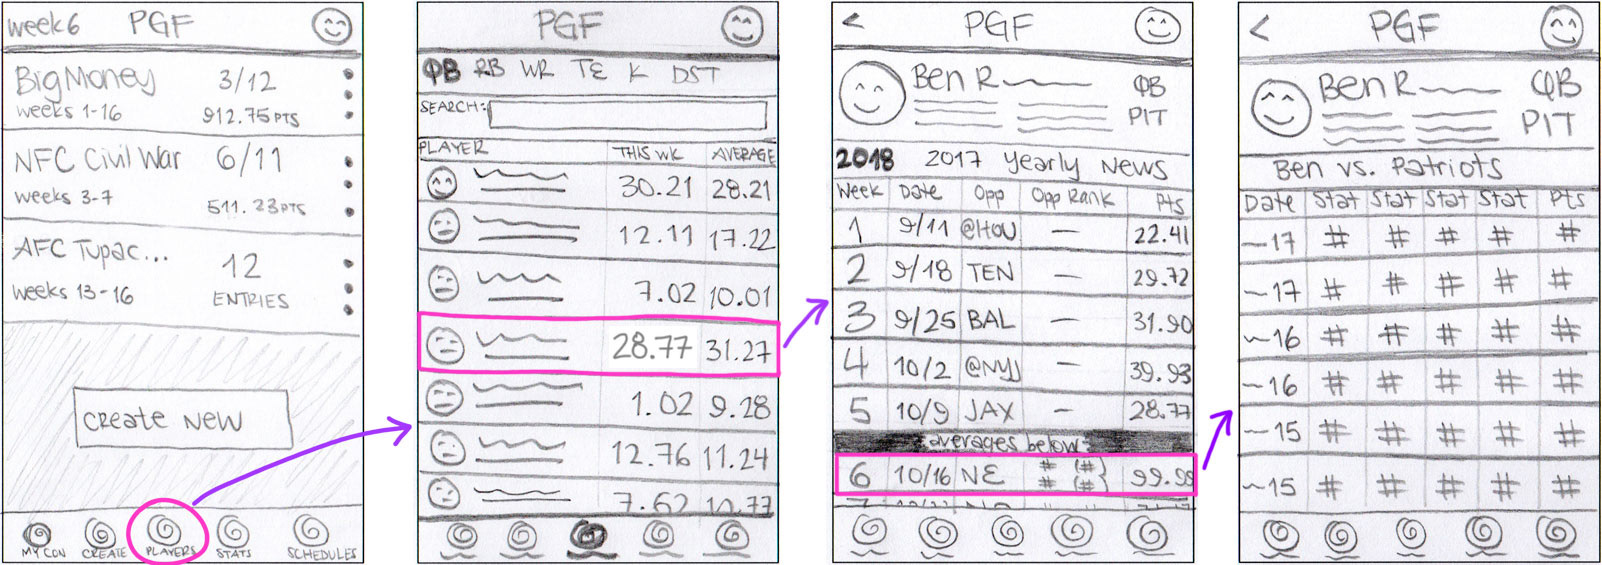 week 6 PGF
Big Money 3/12
weeks 1-16 912.75 PTS
NFC Civil War 6/11
weeks 3-7 511.23 PTS
AFC Tupac... 12
weeks 13-16 ENTRIES
Create New
MY CON CREATE PLAYERS STATS SCHEDULES
PGF
QB RB WR TE K DST
SEARCH:
PLAYER THIS WK AVERAGE
30.21 28.21
12.11 17.22
7.02 10.01
28.77 31.27
1.02 9.28
12.76 11.24
7.62 10.77
< PGF
Ben R QB
PIT
2018 2017 Yearly News
Week Date Opp Opp Rank Pts
1 9/11 @HOU — 22.41
2 9/18 TEN — 29.72
3 9/25 BAL — 31.90
4 10/2 @NYJ — 39.93
5 10/9 JAX — 28.77
averages below:
6 10/16 NE # (#) 99.99
# (#)
< PGF
Ben R QB
PIT
Ben vs. Patriots
Date Stat Stat Stat Stat Pts
~17 # # # # #
~17 # # # # #
~16 # # # # #
~16 # # # # #
~15 # # # # #
~15 # # # # #